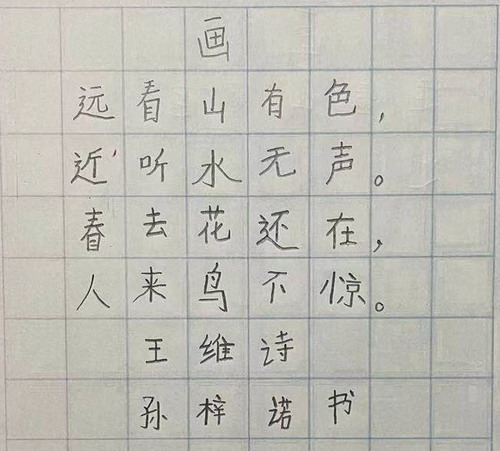 画
远看山有色,
近听水无声。
春去花还在,
人来鸟不惊。
王维诗
孙梓诺书